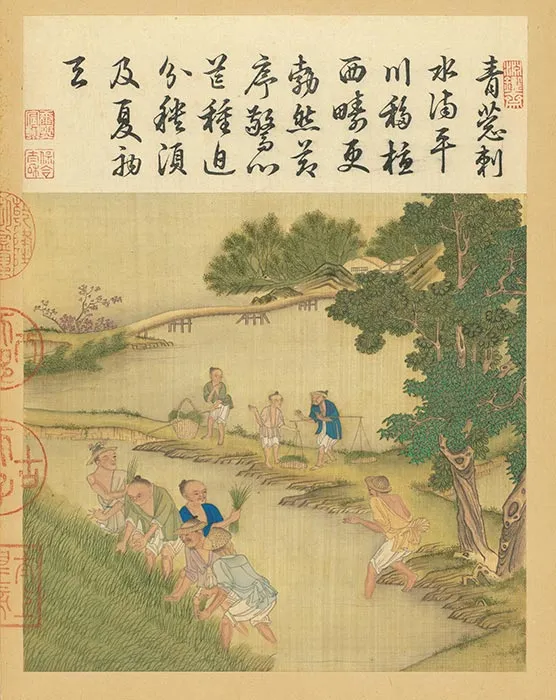 青蔥刺
水滿平
川移植
西疇更
勃然節
序驚心
芒種迫
分秧須
及夏初
天